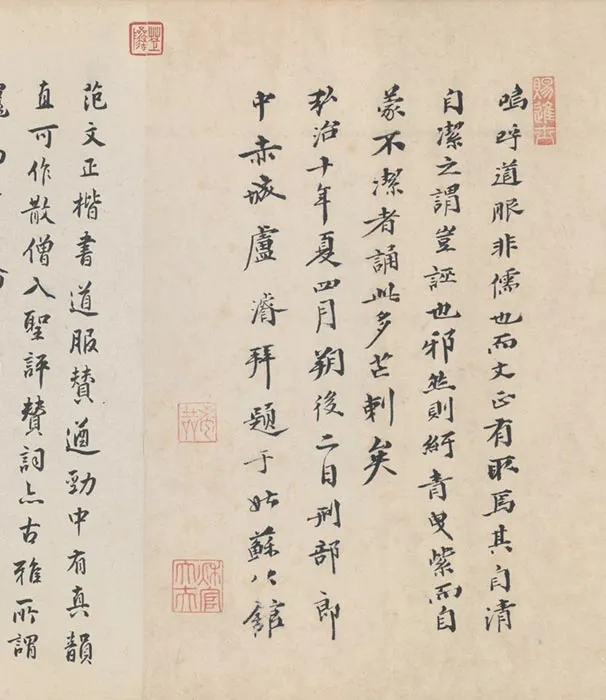 賜進士
嗚呼道服非儒也而文正有取焉其自清
自潔之謂豈誣也邪然則紆青曳紫而自
蒙不潔者誦此多芒刺矣
弘治十年夏四月朔後二日刑部郎
中赤城盧濬拜題于姑蘇公館
秋官大夫
范文正楷書道服賛遒勁中有真韻
直可作散僧入聖評賛詞亦古雅所謂